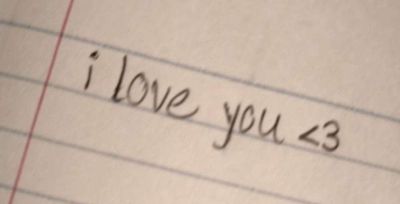 i love you <3